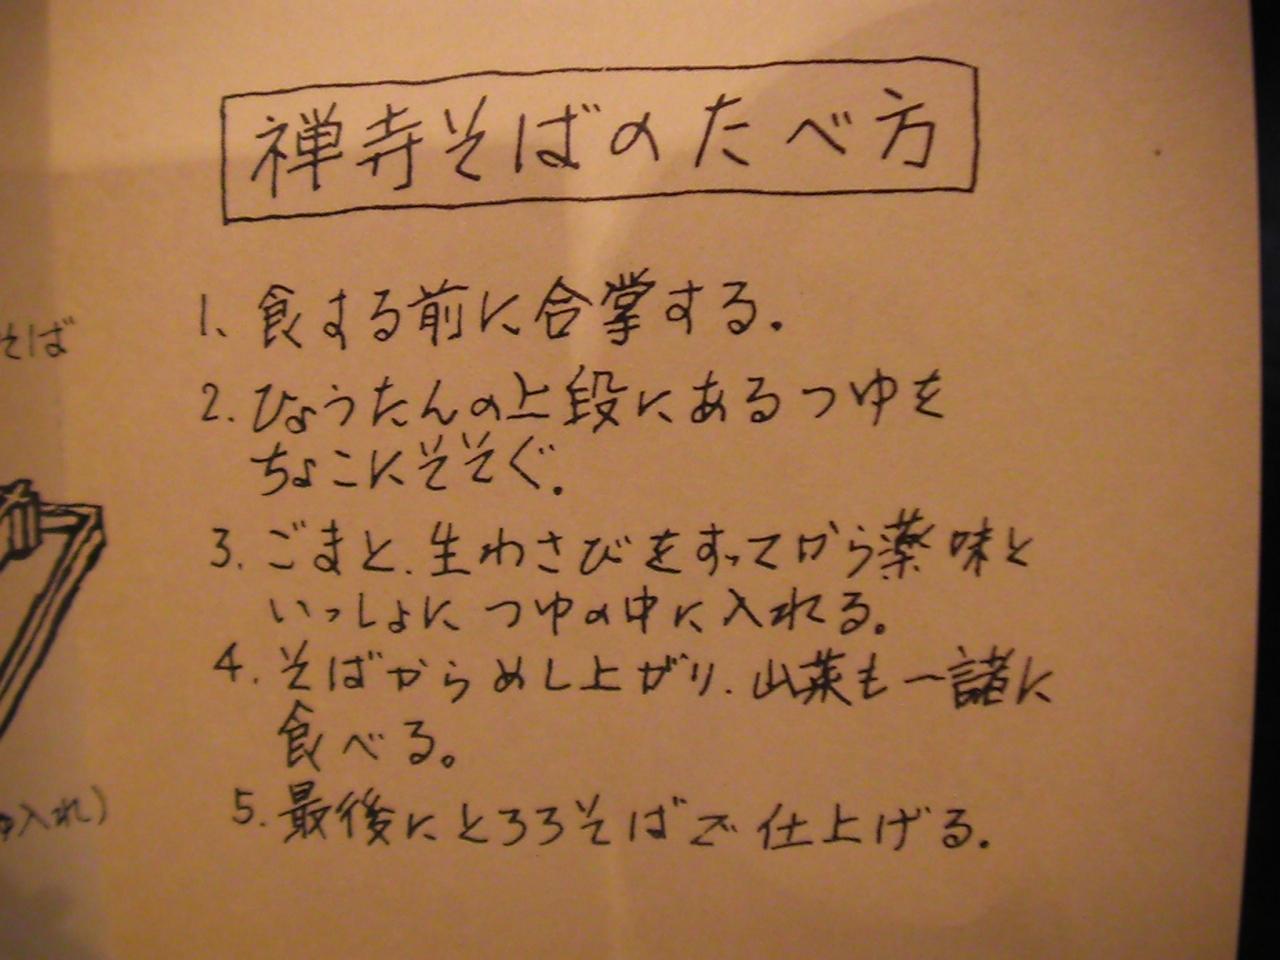 禅寺そばのたべ方
1、食する前に合掌する。
2.ひょうたんの上段にあるつゆを
ちょこにそそぐ。
3.ごまと、生わさびをすってから薬味と
いっしょに つゆの中に入れる。
4.そばからめし上がり、山菜も一諸に
食べる。
5.最後にとろろそばで仕上げる。
そば
入れ)